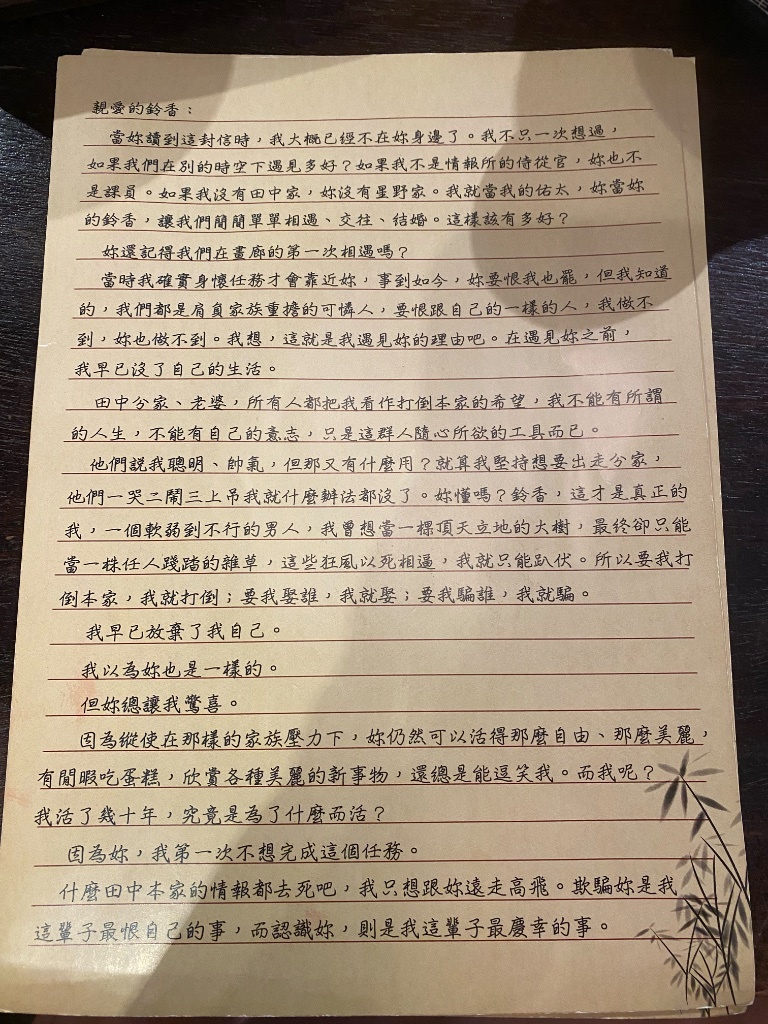 親愛的鈴香：
當妳讀到這封信時，我大概已經不在妳身邊了。我不只一次想過，
如果我們在別的時空下遇見多好？如果我不是情報所的侍從官，妳也不
是課員。如果我沒有田中家，妳沒有星野家。我就當我的佑太，妳當妳
的鈴香，讓我們簡簡單單相遇、交往、結婚。這樣該有多好？
妳還記得我們在畫廊的第一次相遇嗎？
當時我確實身懷任務才會靠近妳，事到如今，妳要恨我也罷，但我知道
的，我們都是肩負家族重擔的可憐人，要恨跟自己的一樣的人，我做不
到，妳也做不到。我想，這就是我遇見妳的理由吧。在遇見妳之前，
我早已沒了自己的生活。
田中分家、老婆，所有人都把我看作打倒本家的希望，我不能有所謂
的人生，不能有自己的意志，只是這群人隨心所欲的工具而已。
他們說我聰明、帥氣，但那又有什麼用？就算我堅持想要出走分家，
他們一哭二鬧三上吊我就什麼辦法都沒了。妳懂嗎？鈴香，這才是真正的
我，一個軟弱到不行的男人，我曾想當一棵頂天立地的大樹，最終卻只能
當一株任人踐踏的雜草，這些狂風以死相逼，我就只能趴伏。所以要我打
倒本家，我就打倒；要我娶誰，我就娶；要我騙誰，我就騙。
我早已放棄了我自己。
我以為妳也是一樣的。
但妳總讓我驚喜。
因為縱使在那樣的家族壓力下，妳仍然可以活得那麼自由、那麼美麗，
有閒暇吃蛋糕，欣賞各種美麗的新事物，還總是能逗笑我。而我呢？
我活了幾十年，究竟是為了什麼而活？
因為妳，我第一次不想完成這個任務。
什麼田中本家的情報都去死吧，我只想跟妳遠走高飛。欺騙妳是我
這輩子最恨自己的事，而認識妳，則是我這輩子最慶幸的事。